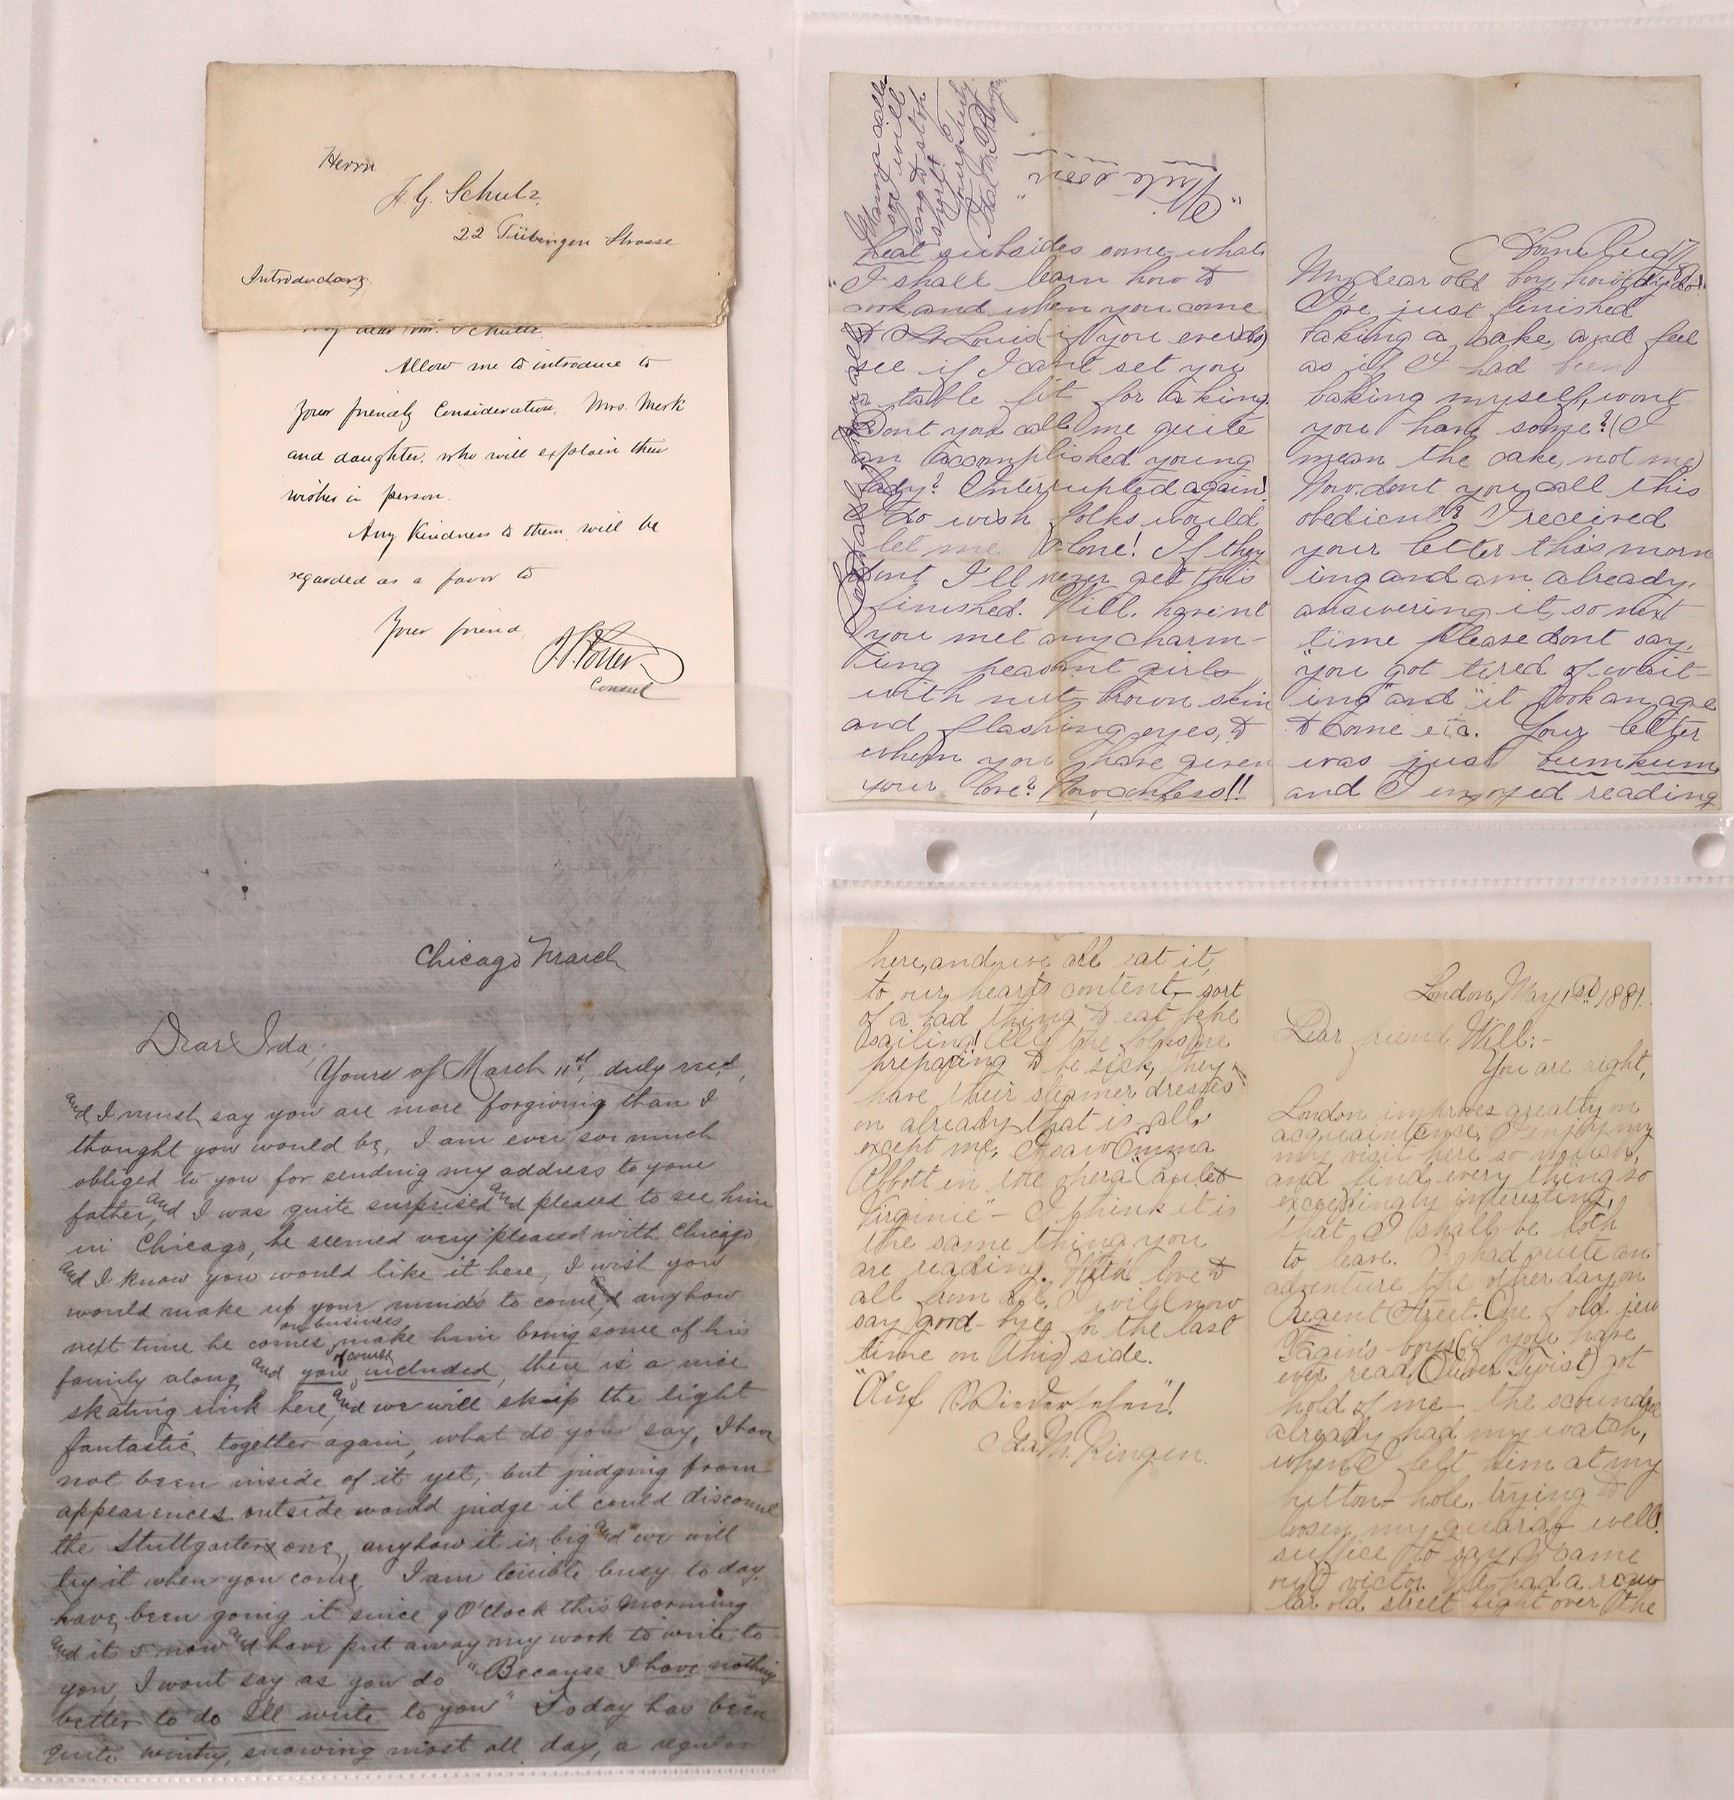 Herrn
H. G. Schulz
22 Tübingen Strasse
Introductory
My dear Mr. Schulz
Allow me to introduce to
your friendly consideration, Mrs. Merk
and daughter, who will explain their
wishes in person.
Any Kindness to them will be
regarded as a favor to
Your friend,
Potter
Consul
Chicago March
Dear Ida,
Yours of March 11st, duly recd,
and I must say you are more forgiving than I
thought you would be, I am ever so much
obliged to you for sending my address to your
father, and I was quite surprised and pleased to see him
in Chicago, he seemed very pleased with Chicago
and I know you would like it here, I wish you
would make up your minds to come anyhow
next time he comes on business, make him bring some of his
family along, and you of course included, there is a nice
skating rink here, and we will skip the light
fantastic together again, what do you say, I have
not been inside of it yet, but judging from
appearences outside would judge it could discount
the Stuttgarter one, anyhow it is big and we will
try it when you come I am terrible busy to day.
have been going it since 9 O'Clock this morning
and its 5 now and have put away my work to write to
you, I wont say as you do "Because I have nothing
better to do Ill write to you" Today has been
quite wintry, snowing most all day, a regular
Mamma calls
will
to stop
short
Yours truly
"Write soon"
heat subsides some-what
I shall learn how to
cook and when you come
to St Louis (if you ever do)
see if I cant set you
a table fit for a king
Dont you call me quite
an accomplished young
lady? Interrupted again!
I do wish folks would
let me alone! If they
dont I'll never get this
finished. Will. havent
you met any charm-
ing peasant girls
with nut-brown skin
and flashing eyes, to
whom you have given
your love? Now confess!!
Home Aug 17
My dear old boy, how dye do!
I've just finished
baking a cake, and feel
as if I had been
baking myself, wont
you have some? (I
mean the cake, not me)
Now dont you call this
obedient? I received
your letter this morn
ing and am already
answering it, so next
time please dont say,
"you got tired of wait-
ing" and "it took an age
to come etc. Your letter
was just bumkum
and I enjoyed reading
here, and we all eat it,
to our hearts content - sort
of a bad thing to eat before
sailing! All the folks are
preparing to be sick, they
have their steamer dresses
on already, that is all,
except me. I saw Emma
Abbott in the opera "Paul et
Virginie" - I think it is
the same thing you
are reading. With love to
all from all, I will now
say good-bye for the last
time on this side.
"Auf Wiedersehen"!
Ida M. Ringen.
London, May 1st, 1881.
Dear friend Will:-
You are right,
London improves greatly on
acquaintence; I enjoy my
my visit here so much,
and find every thing so
exceedingly interesting,
that I shall be loth
to leave. I had quite an
adventure the other day on
Regent Street. One of old jew
Fagin's boys (if you have
ever read Oliver Twist) got
hold of me - the scoundrel
already had my watch,
when I felt him at my
button-hole, trying to
loosen my guard, well!
suffice to say, I came
out victor. We had a regu
lar old street fight over the